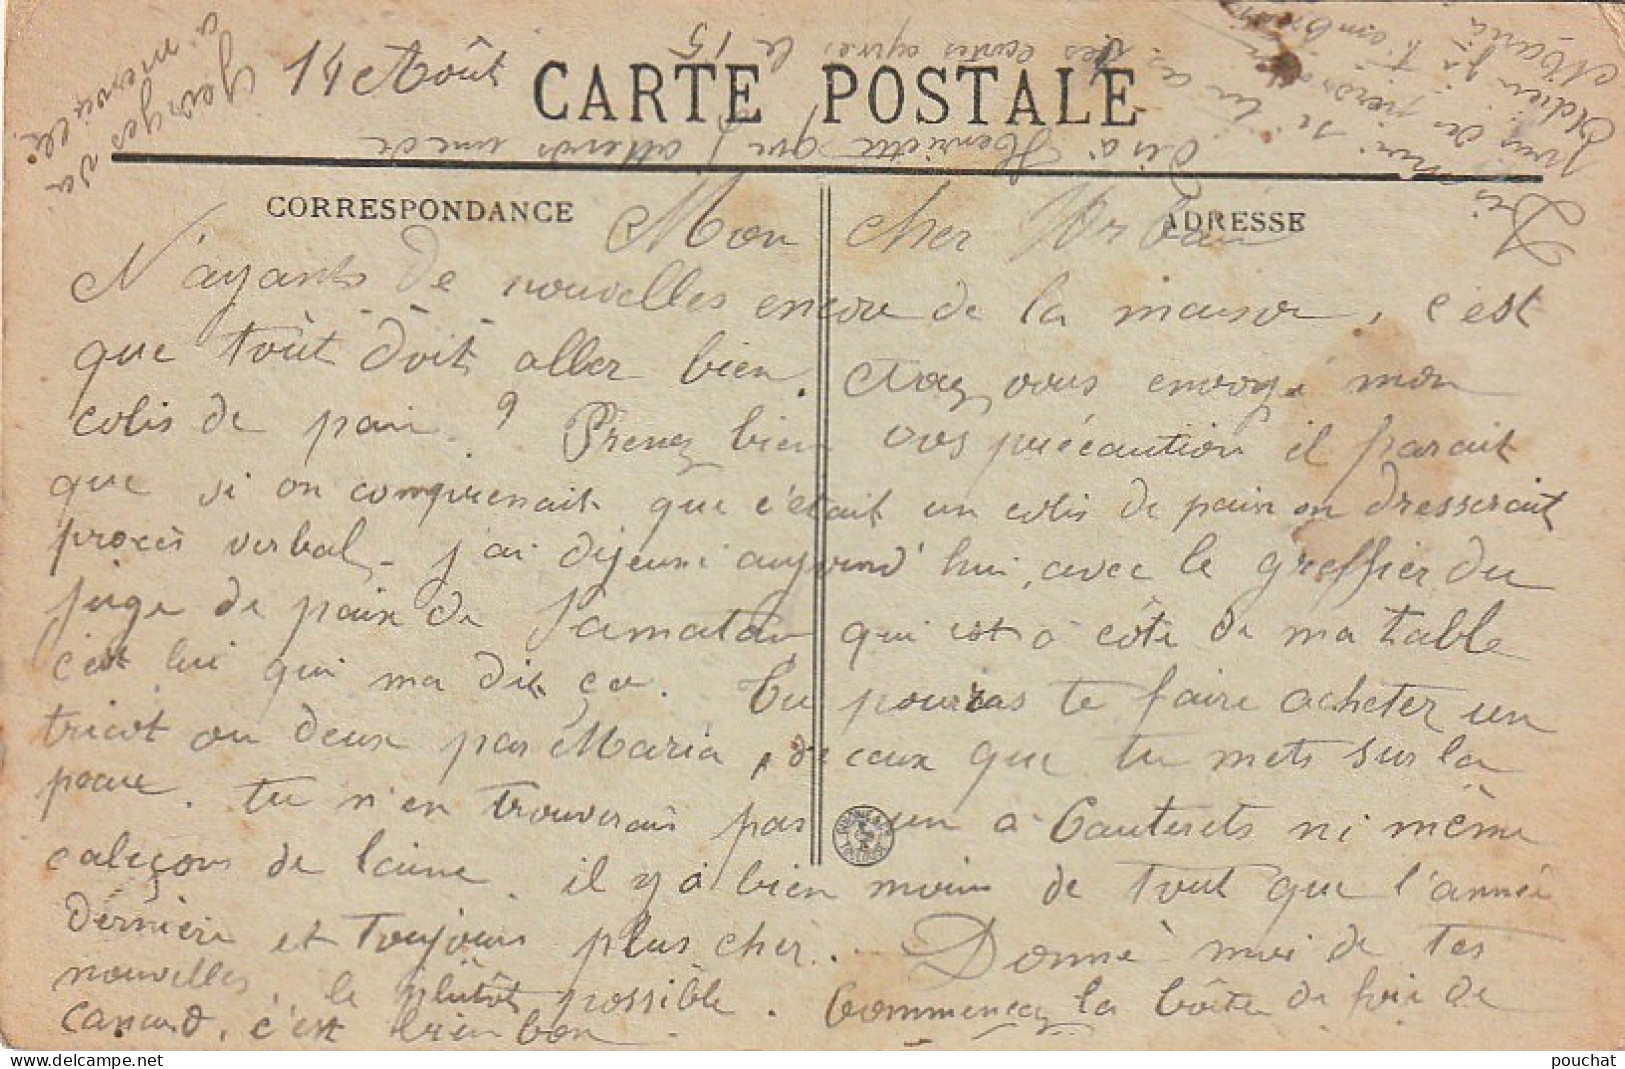 14 Août
CARTE POSTALE
Georges va
à merveille
CORRESPONDANCE
ADRESSE
Mon cher Urbain
N'ayants de nouvelles encore de la maison, c'est
que toût doit aller bien. Avez vous envoyé mon
colis de pain ? Prenez bien vos précaution il parait
que si on comprenait que c'était un colis de pain on dresserait
procès verbal - j'ai déjeuné aujourd'hui, avec le greffier du
juge de paix de Samatan qui est à côté de ma table
c'est lui qui ma dit ça. Tu pourras te faire acheter un
tricot ou deux par Maria, de ceux que tu mets sur la
peau. tu n'en trouverais pas un à Cauterets ni même
caleçons de laine. il y a bien moins de tout que l'année
dernière et toujours plus cher... Donne moi de tes
nouvelles, le plûtôt possible. Commencez la boîte de foie de
canard, c'est bien bon
Dis à Henriette que j'attends une de
ses cartes après le 15
Maria
pouchat